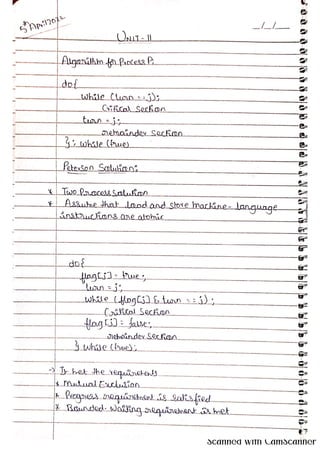 5th April 2022
__/__/__
UNIT-II
Algorithm for Process Pi
do{
while (turn == j);
Critical Section
turn = j;
remainder section
}; while (true)
Peterson Solution:
* Two Process Solution
* Assume that load and store machine-language
instructions are atomic
do{
flag[i] = true;
turn = j;
while (flag[j] & turn == j);
Critical Section
flag[i] = false;
remainder Section
} while (true);
-> It met the requirements
* Mutual Exclusion
* Progress requirement is satisfied
* Bounded-Waiting requirement is met
Scanned with CamScanner